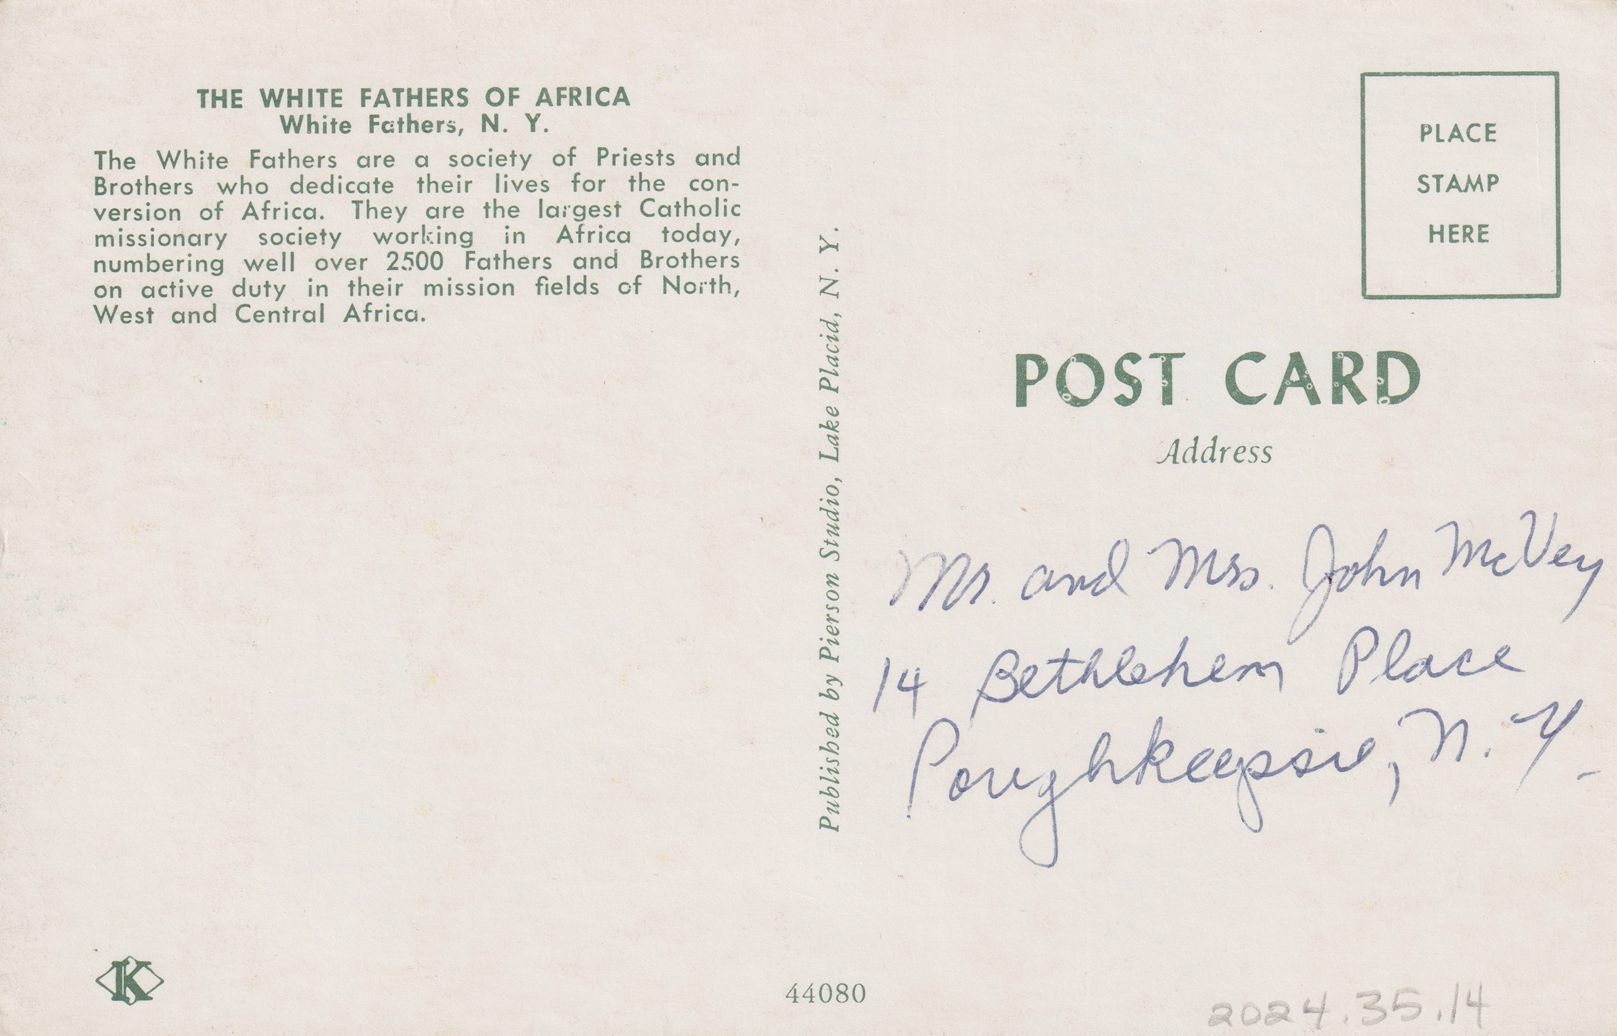 THE WHITE FATHERS OF AFRICA
White Fathers, N. Y.
The White Fathers are a society of Priests and
Brothers who dedicate their lives for the con-
version of Africa. They are the largest Catholic
missionary society working in Africa today,
numbering well over 2500 Fathers and Brothers
on active duty in their mission fields of North,
West and Central Africa.
K
Published by Pierson Studio, Lake Placid, N. Y.
44080
PLACE
STAMP
HERE
POST CARD
Address
Mr. and Mrs. John McVey
14 Bethlehem Place
Poughkeepsie, N. Y.
2024.35.14